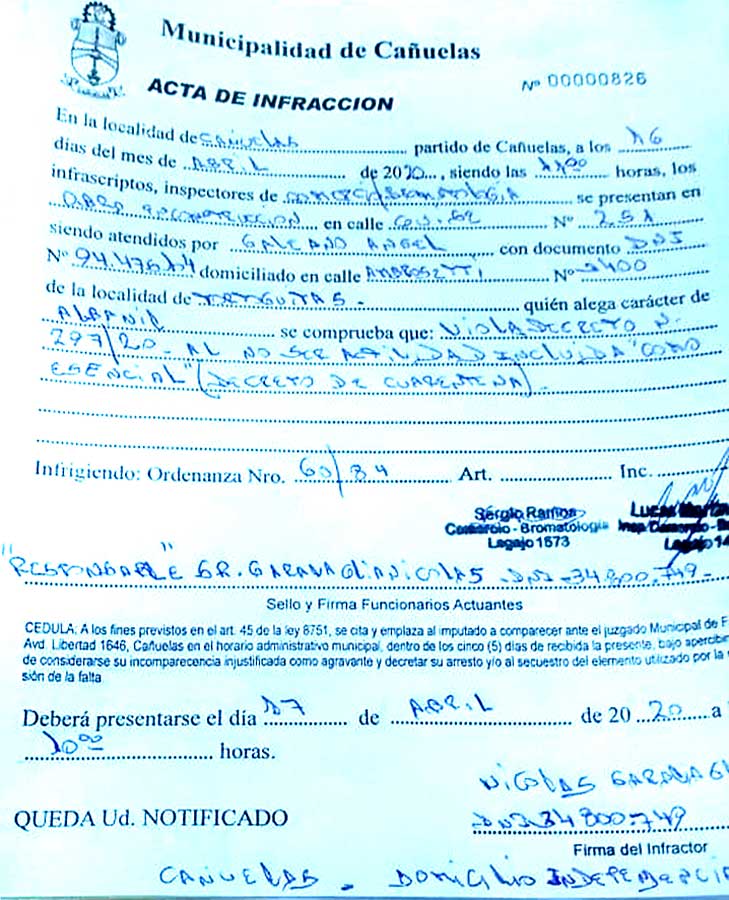 Municipalidad de Cañuelas
ACTA DE INFRACCION
Nº 00000826
En la localidad de CAÑUELAS partido de Cañuelas, a los 16
días del mes de ABRIL de 2020, siendo las 11:00 horas, los
infrascriptos, inspectores de COMERCIO/BROMATOLOGIA se presentan en
OBRA en calle Nº 251
siendo atendidos por GALEANO ANGEL con documento DNI
Nº domiciliado en calle Nº 2400
de la localidad de quién alega carácter de
ALBAÑIL se comprueba que: VIOLA DECRETO N.
297/20 - AL NO SER ACTIVIDAD INCLUIDA "COMO
ESENCIAL" (DECRETO DE CUARENTENA).
Infrigiendo: Ordenanza Nro. 60/84 Art. Inc.
Sergio Ramos Lucas
Comercio - Bromatología Insp. Comercio -
Legajo 1573 Legajo 14
"RESPONSABLE" SR. NICOLAS - DNI - 34.800.749 -
Sello y Firma Funcionarios Actuantes
CEDULA: A los fines previstos en el art. 45 de la ley 8751, se cita y emplaza al imputado a comparecer ante el juzgado Municipal de F
Avd. Libertad 1646, Cañuelas en el horario administrativo municipal, dentro de los cinco (5) días de recibida la presente, bajo apercibi
de considerarse su incomparecencia injustificada como agravante y decretar su arresto y/o al secuestro del elemento utilizado por la
sión de la falta
Deberá presentarse el día de ABRIL de 20 20 a
10:00 horas.
NICOLAS
QUEDA Ud. NOTIFICADO
DNI 34.800.749
Firma del Infractor
CAÑUELAS - DOMICILIO INDEPENDENCIA